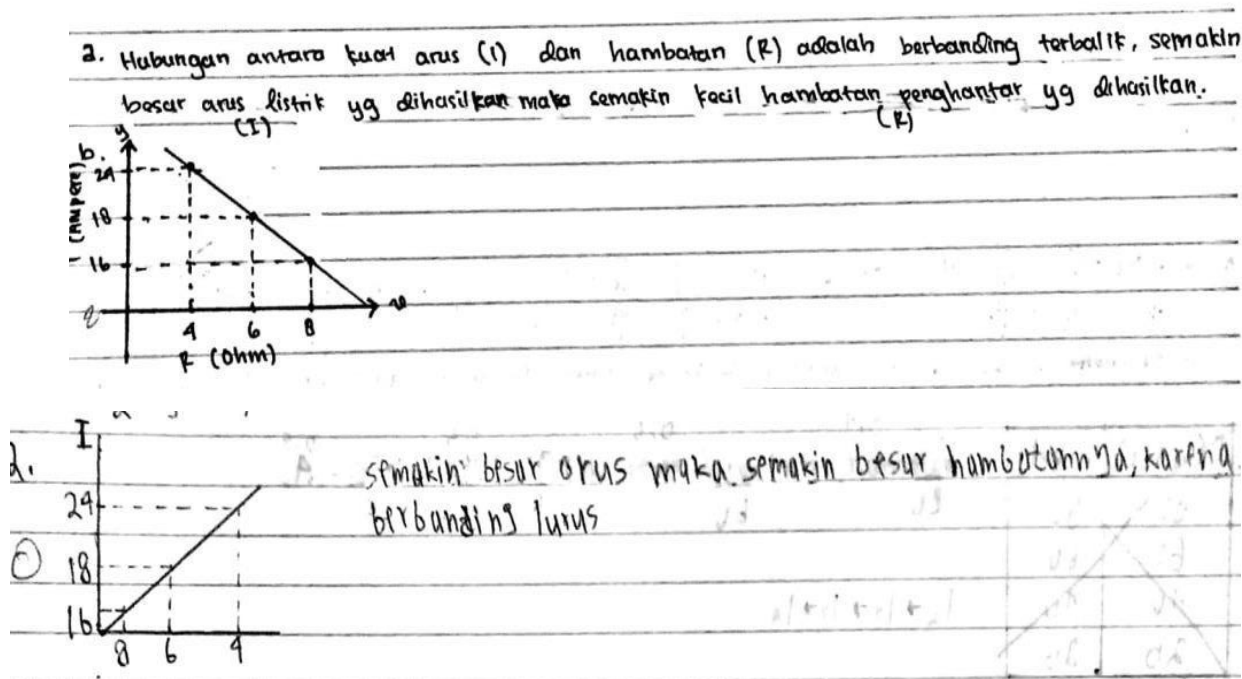 a. Hubungan antara kuat arus (I) dan hambatan (R) adalah berbanding terbalik, semakin
besar arus listrik yg dihasilkan maka semakin kecil hambatan penghantar yg dihasilkan.
(I) (R)
b. y
I (Ampere)
24
18
16
4 6 8
R (Ohm)
I
d. semakin besar arus maka semakin besar hambatannya, karena
24 berbanding lurus
18
16
8 6 4